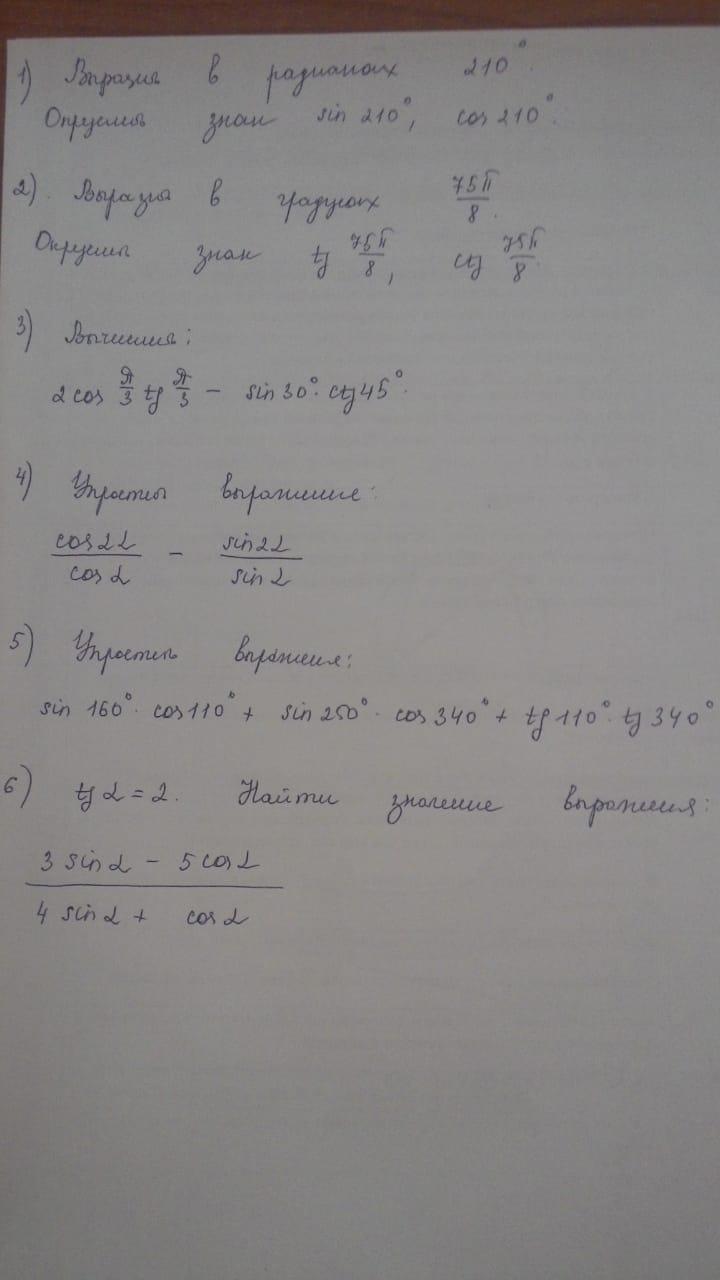 1) Вырази в радианах 210°.
Определи знак sin 210°, cos 210°.
2). Вырази в градусах 75π/8.
Определи знак tg 75π/8, ctg 75π/8.
3) Вычисли:
2 cos π/3 tg π/3 - sin 30° · ctg 45°.
4) Упрости выражение:
cos 2α/cos α - sin 2α/sin α
5) Упрости выражения:
sin 160° · cos 110° + sin 250° · cos 340° + tg 110° · tg 340°
6) tg α = 2. Найти значение выражения:
3 sin α - 5 cos α
4 sin α + cos α